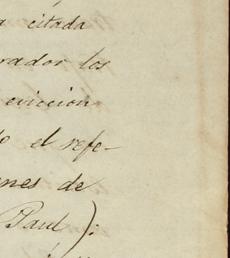 citada
rador los
eviccion
el refe-
nes de
Paul):